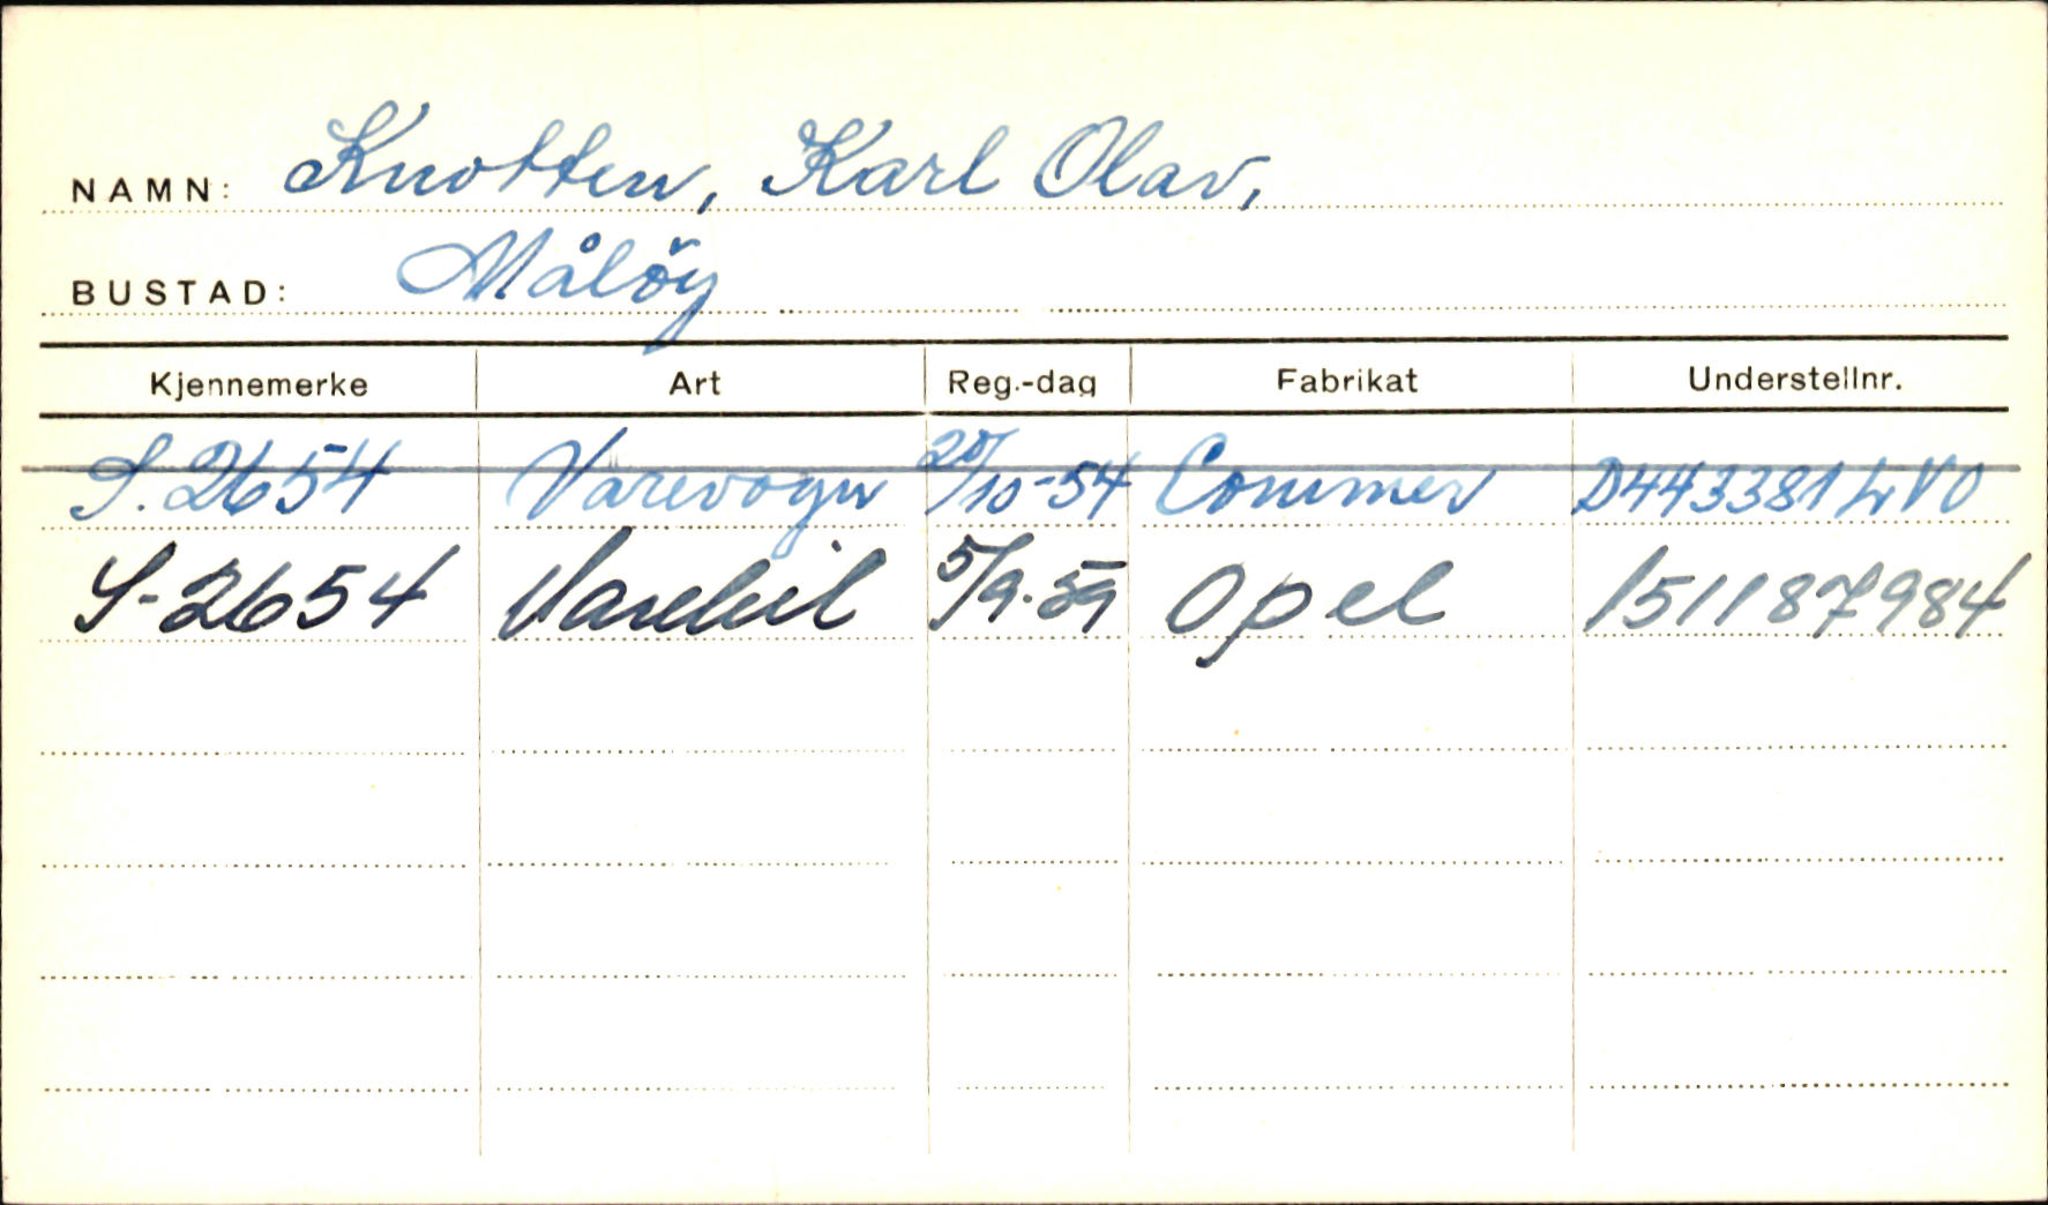 NAMN: Knotten, Karl Olav,
BUSTAD: Målöy
Kjennemerke Art Reg.-dag Fabrikat Understellnr.
S.2654 Varevogn 20/10-54 Commer D443381LVO
S-2654 Varebil 5/9-59 Opel 151187984